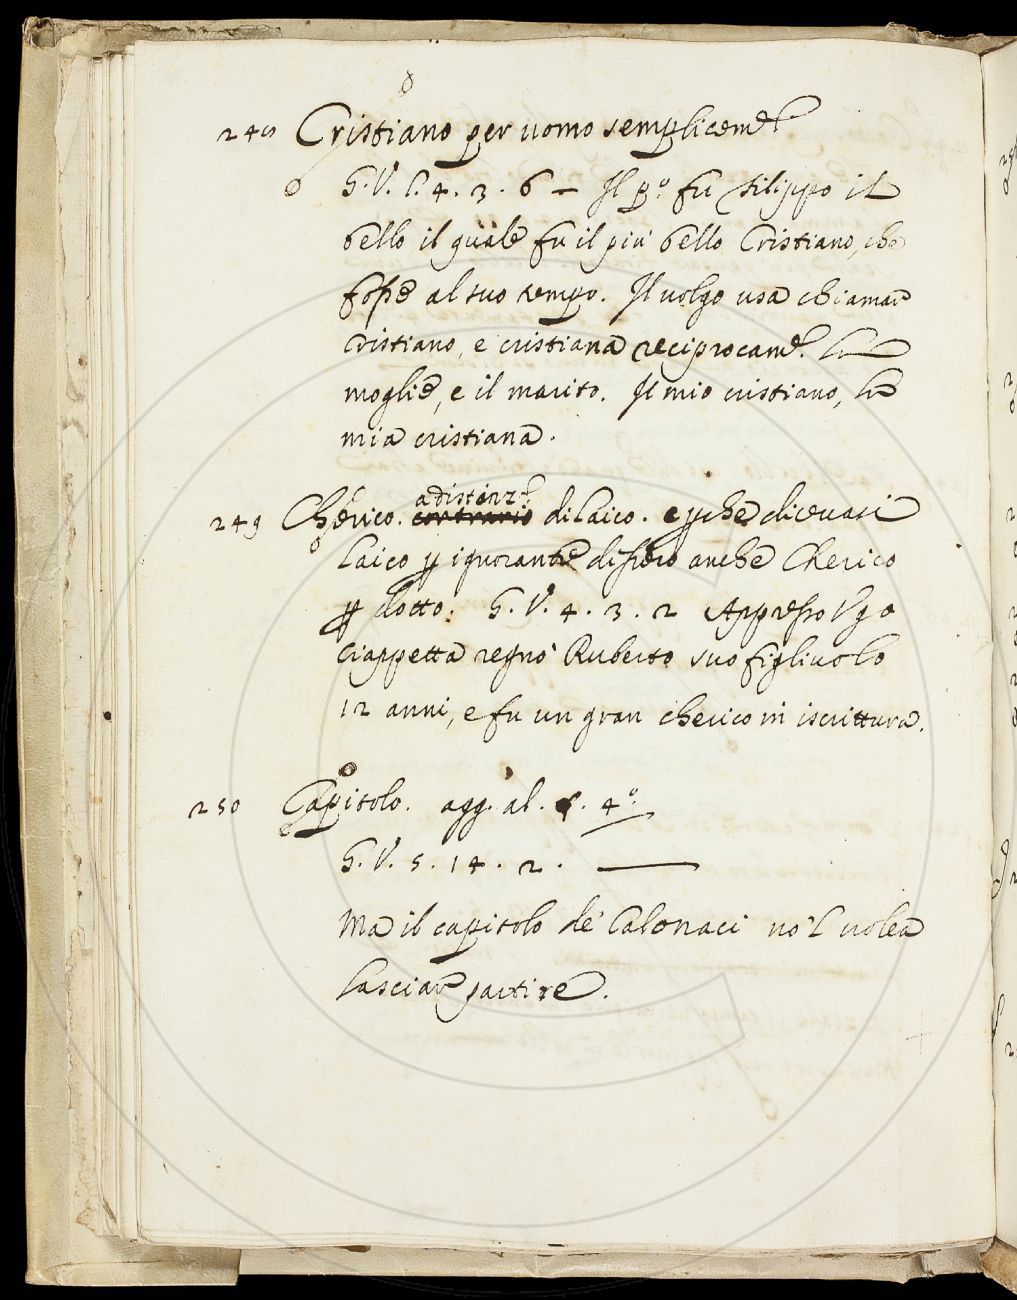 248 Cristiano per uomo semplicemte
G. V. l. 4. 3. 6 — Il po. fu Filippo il
bello il quale fu il più bello Cristiano, che
fosse al suo tempo. Il volgo usa chiamare
cristiano, e cristiana reciprocamte. la
moglie, e il marito. Il mio cristiano, la
mia cristiana.
adistinze
249 Cherico. contrario di laico. e perche dicevasi
laico per ignorante dissero anche Cherico
per dotto: G. V. 4. 3. 2 Appresso Vgo
Ciappetta regnò Ruberto suo figliuolo
12 anni, e fu un gran cherico in iscrittura.
250 Capitolo. agg. al. §. 4o.
G. V. 5. 14. 2. —
Ma il capitolo de' Calonaci no'l volea
lasciare partire.